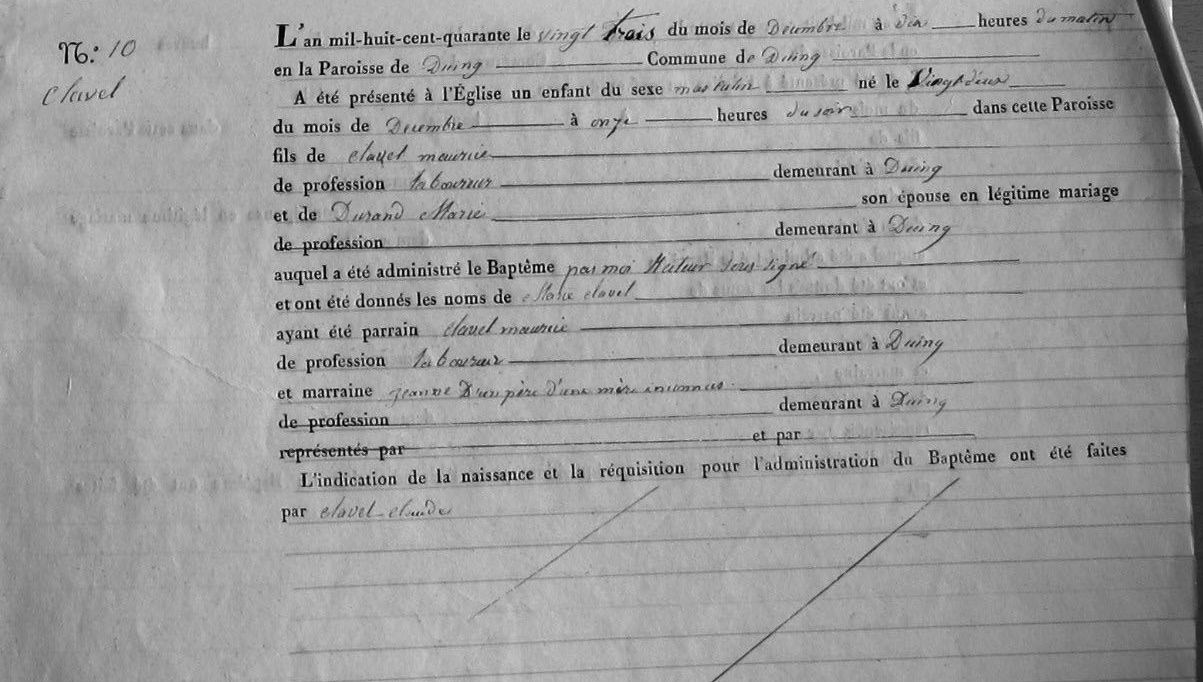 N.º 10
Clavel
L'an mil-huit-cent-quarante le vingt trois du mois de Decembre à dix heures du matin
en la Paroisse de Duing Commune de Duing
A été présenté à l'Église un enfant du sexe masculin né le Vingt deux
du mois de Decembre à onze heures du soir dans cette Paroisse
fils de clavel maurice
de profession laboureur demeurant à Duing
et de Durand Marie son épouse en légitime mariage
de profession demeurant à Duing
auquel a été administré le Baptême par moi Recteur sous signé
et ont été donnés les noms de clavel
ayant été parrain clavel maurice
de profession laboureur demeurant à Duing
et marraine jeanne D'un père d'une mère inconnus
de profession demeurant à Duing
représentés par et par
L'indication de la naissance et la réquisition pour l'administration du Baptême ont été faites
par clavel claude